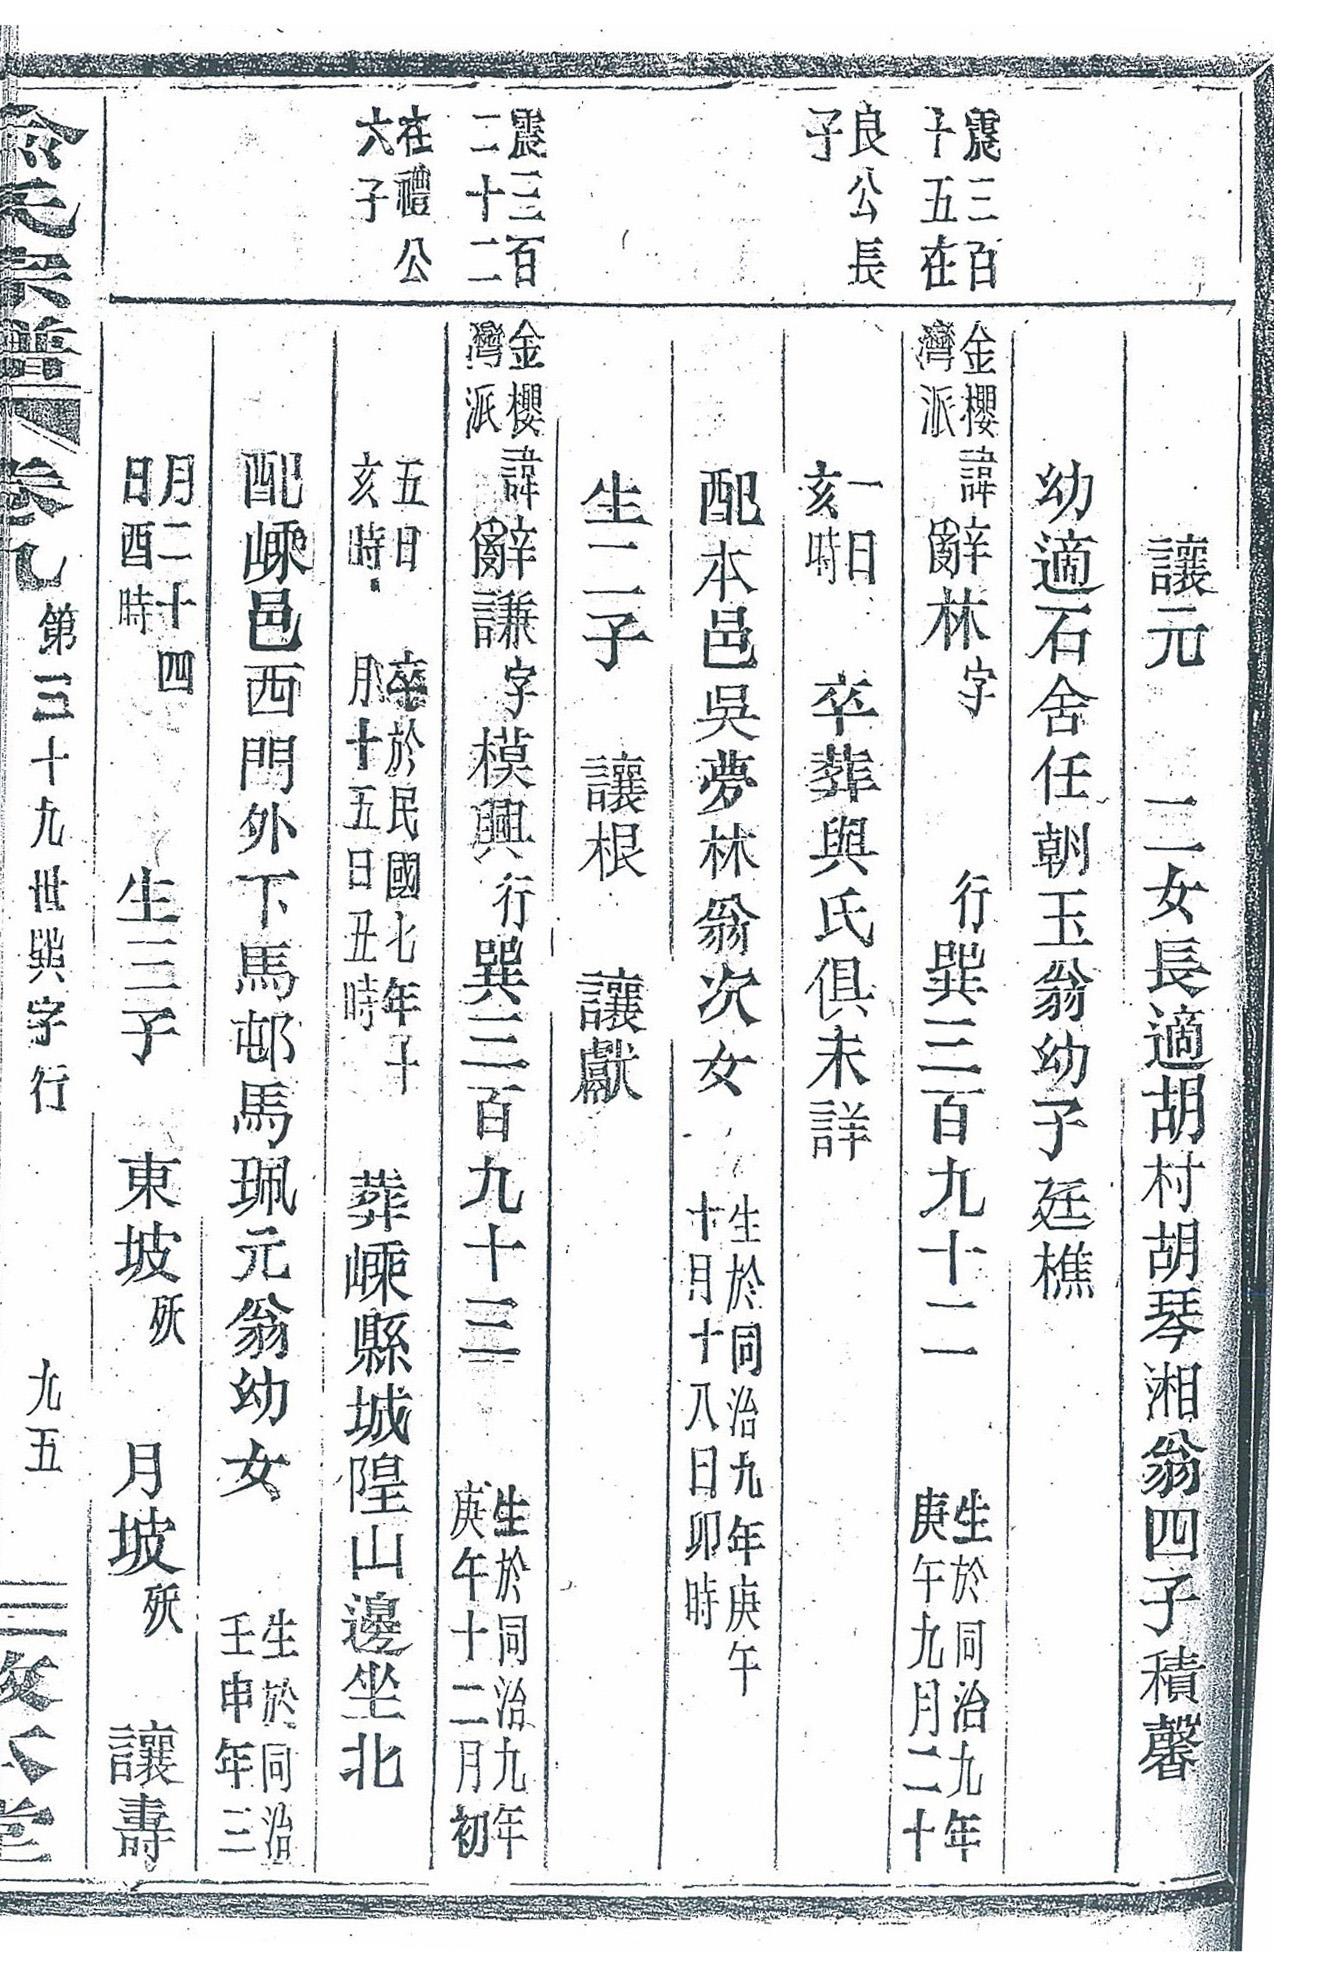 讓元　二女長適胡村胡琴湘翁四子積馨
幼適石舍任朝玉翁幼子廷樵
震三百
十五在
良公長
子
金櫻
灣派
諱辭林字　行巽三百九十二
生於同治九年
庚午九月二十
一日
亥時
卒葬與氏俱未詳
配本邑吳夢林翁次女
生於同治九年庚午
十月十八日卯時
生二子　讓根　讓獻
震三百
二十二
在禮公
六子
金櫻
灣派
諱辭謙字模興行巽三百九十三
生於同治九年
庚午十二月初
五日
亥時
卒於民國七年十
月十五日丑時
葬嵊縣城隍山邊坐北
配嵊邑西門外下馬邨馬珮元翁幼女
生於同治
壬申年三
月二十四
日酉時
生三子　東坡殀　月坡殀　讓壽
俞氏宗譜　卷九　第三十九世巽字行　九五